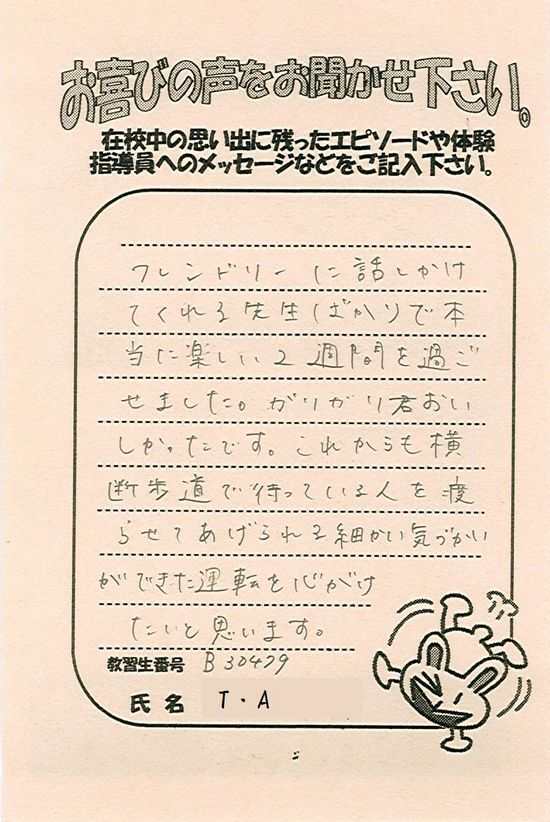 お喜びの声をお聞かせ下さい。
在校中の思い出に残ったエピソードや体験
指導員へのメッセージなどをご記入下さい。
フレンドリーに話しかけ
てくれる先生ばかりで本
当に楽しい2週間を過ご
せました。ガリガリ君おい
しかったです。これからも横
断歩道で待っている人を渡
らせてあげられる細かい気づかい
ができた運転を心がけ
たいと思います。
教習生番号 B30429
氏名 T・A